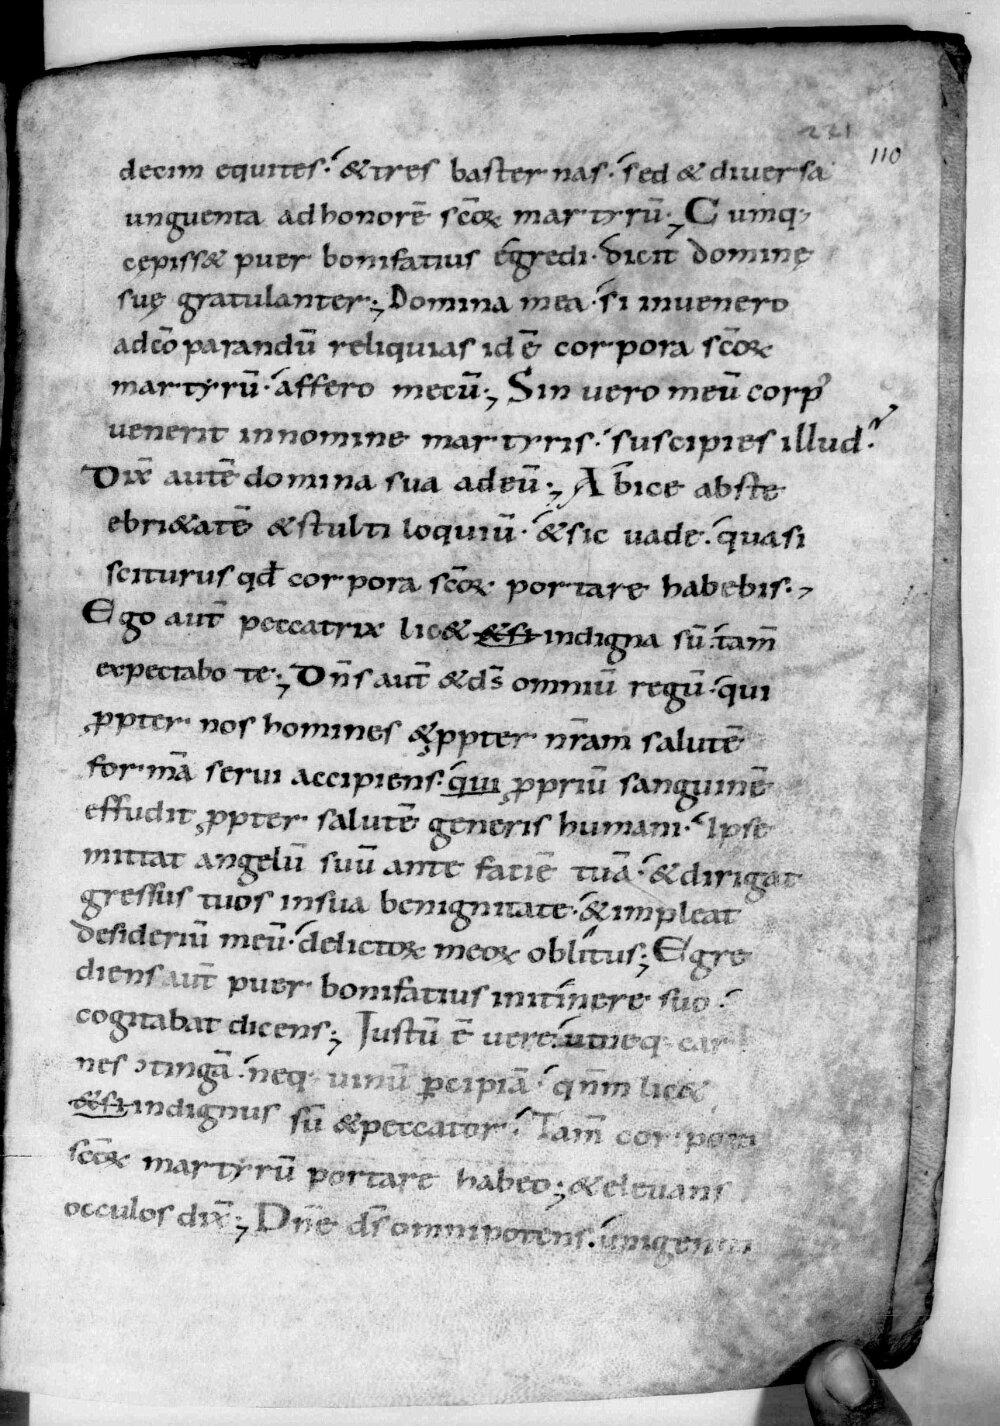 221
110
decim equites· &tres basternas· sed & diuersa
unguenta adhonorē scōꝝ martyrū·; Cumq·
cępiss& puer bonifatius egredi· dicit dominę
suę gratulanter·; Domina mea· si inuenero
adcōparandū reliquias id ē corpora scōꝝ
martyrū· affero mecū·; Sin uero meū corpꝰ
uenerit innomine martyris· suscipies illud·
Dix̄ autē domina sua adeū·; Abice abste
ebri&atē &stultiloquiū· &sic uade· quasi
sciturus qđ corpora scōꝝ portare habebis·
Ego aut̄ peccatrix lic& &si indigna sū· tam̄
expectabo te·; Dn̄s aut̄ &ds̄ omniū regū· qui
ꝓpter nos homines &ꝓpter nr̄am salutē
formā serui accipiens· qui ꝓpriū sanguinē
effudit ꝓpter salutē generis humani· Ipse
mittat angelū suū ante faciē tuā· &dirigat
gressus tuos insua benignitate· &impleat
desideriū meū· delictoꝝ meoꝝ oblitus·; Egre
diens aut̄ puer bonifatius initinere suo·
cogitabat dicens·; Iustū ē uere· utneq· car
nes ɔtingā· neq· uinū ꝑcipiā· qn̄m lic&
&si indignus sū &peccator· Tam̄ corpora
scōꝝ martyrū portare habeo·; &eleuans
occulos dix̄·; Dn̄e ds̄ omnipotens· unigeniti